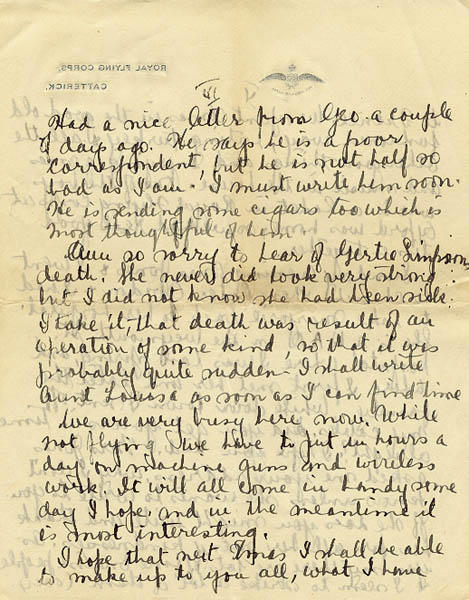 ROYAL FLYING CORPS,
CATTERICK.
VI
Had a nice letter from Geo. a couple
of days ago. He says he is a poor
correspondent, but he is not half so
bad as I am. I must write him soon.
He is sending some cigars too which is
most thoughtful of him.
Am so sorry to hear of Gertie Simpson
death. She never did look very strong
but I did not know she had been sick.
I take it that death was result of an
operation of some kind, so that it was
probably quite sudden. I shall write
Aunt Louisa as soon as I can find time
We are very busy here now. While
not flying we have to put in hours a
day on machine guns and wireless
work. It will all come in handy some
day I hope and in the meantime it
is most interesting.
I hope that next Xmas I shall be able
to make up to you all, what I have